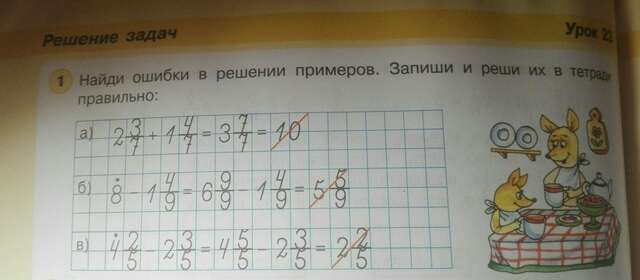 Решение задач
Урок 23
1 Найди ошибки в решении примеров. Запиши и реши их в тетради
правильно:
а) 2 3/7 + 1 4/7 = 3 7/7 = 10
б) 8 - 1 4/9 = 6 9/9 - 1 4/9 = 5 5/9
в) 4 2/5 - 2 3/5 = 4 5/5 - 2 3/5 = 2 2/5